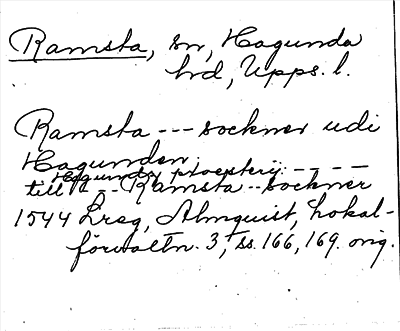 Ramsta, sn, Hagunda
hd, Upps. l.
Ramsta --- sockner udi
Hagunden
Hagundz prosterij ----
till --- Ramsta -- sockner
1544 Lreg, Almquist, Lokal-
förvaltn. 3, ss. 166, 169. orig.